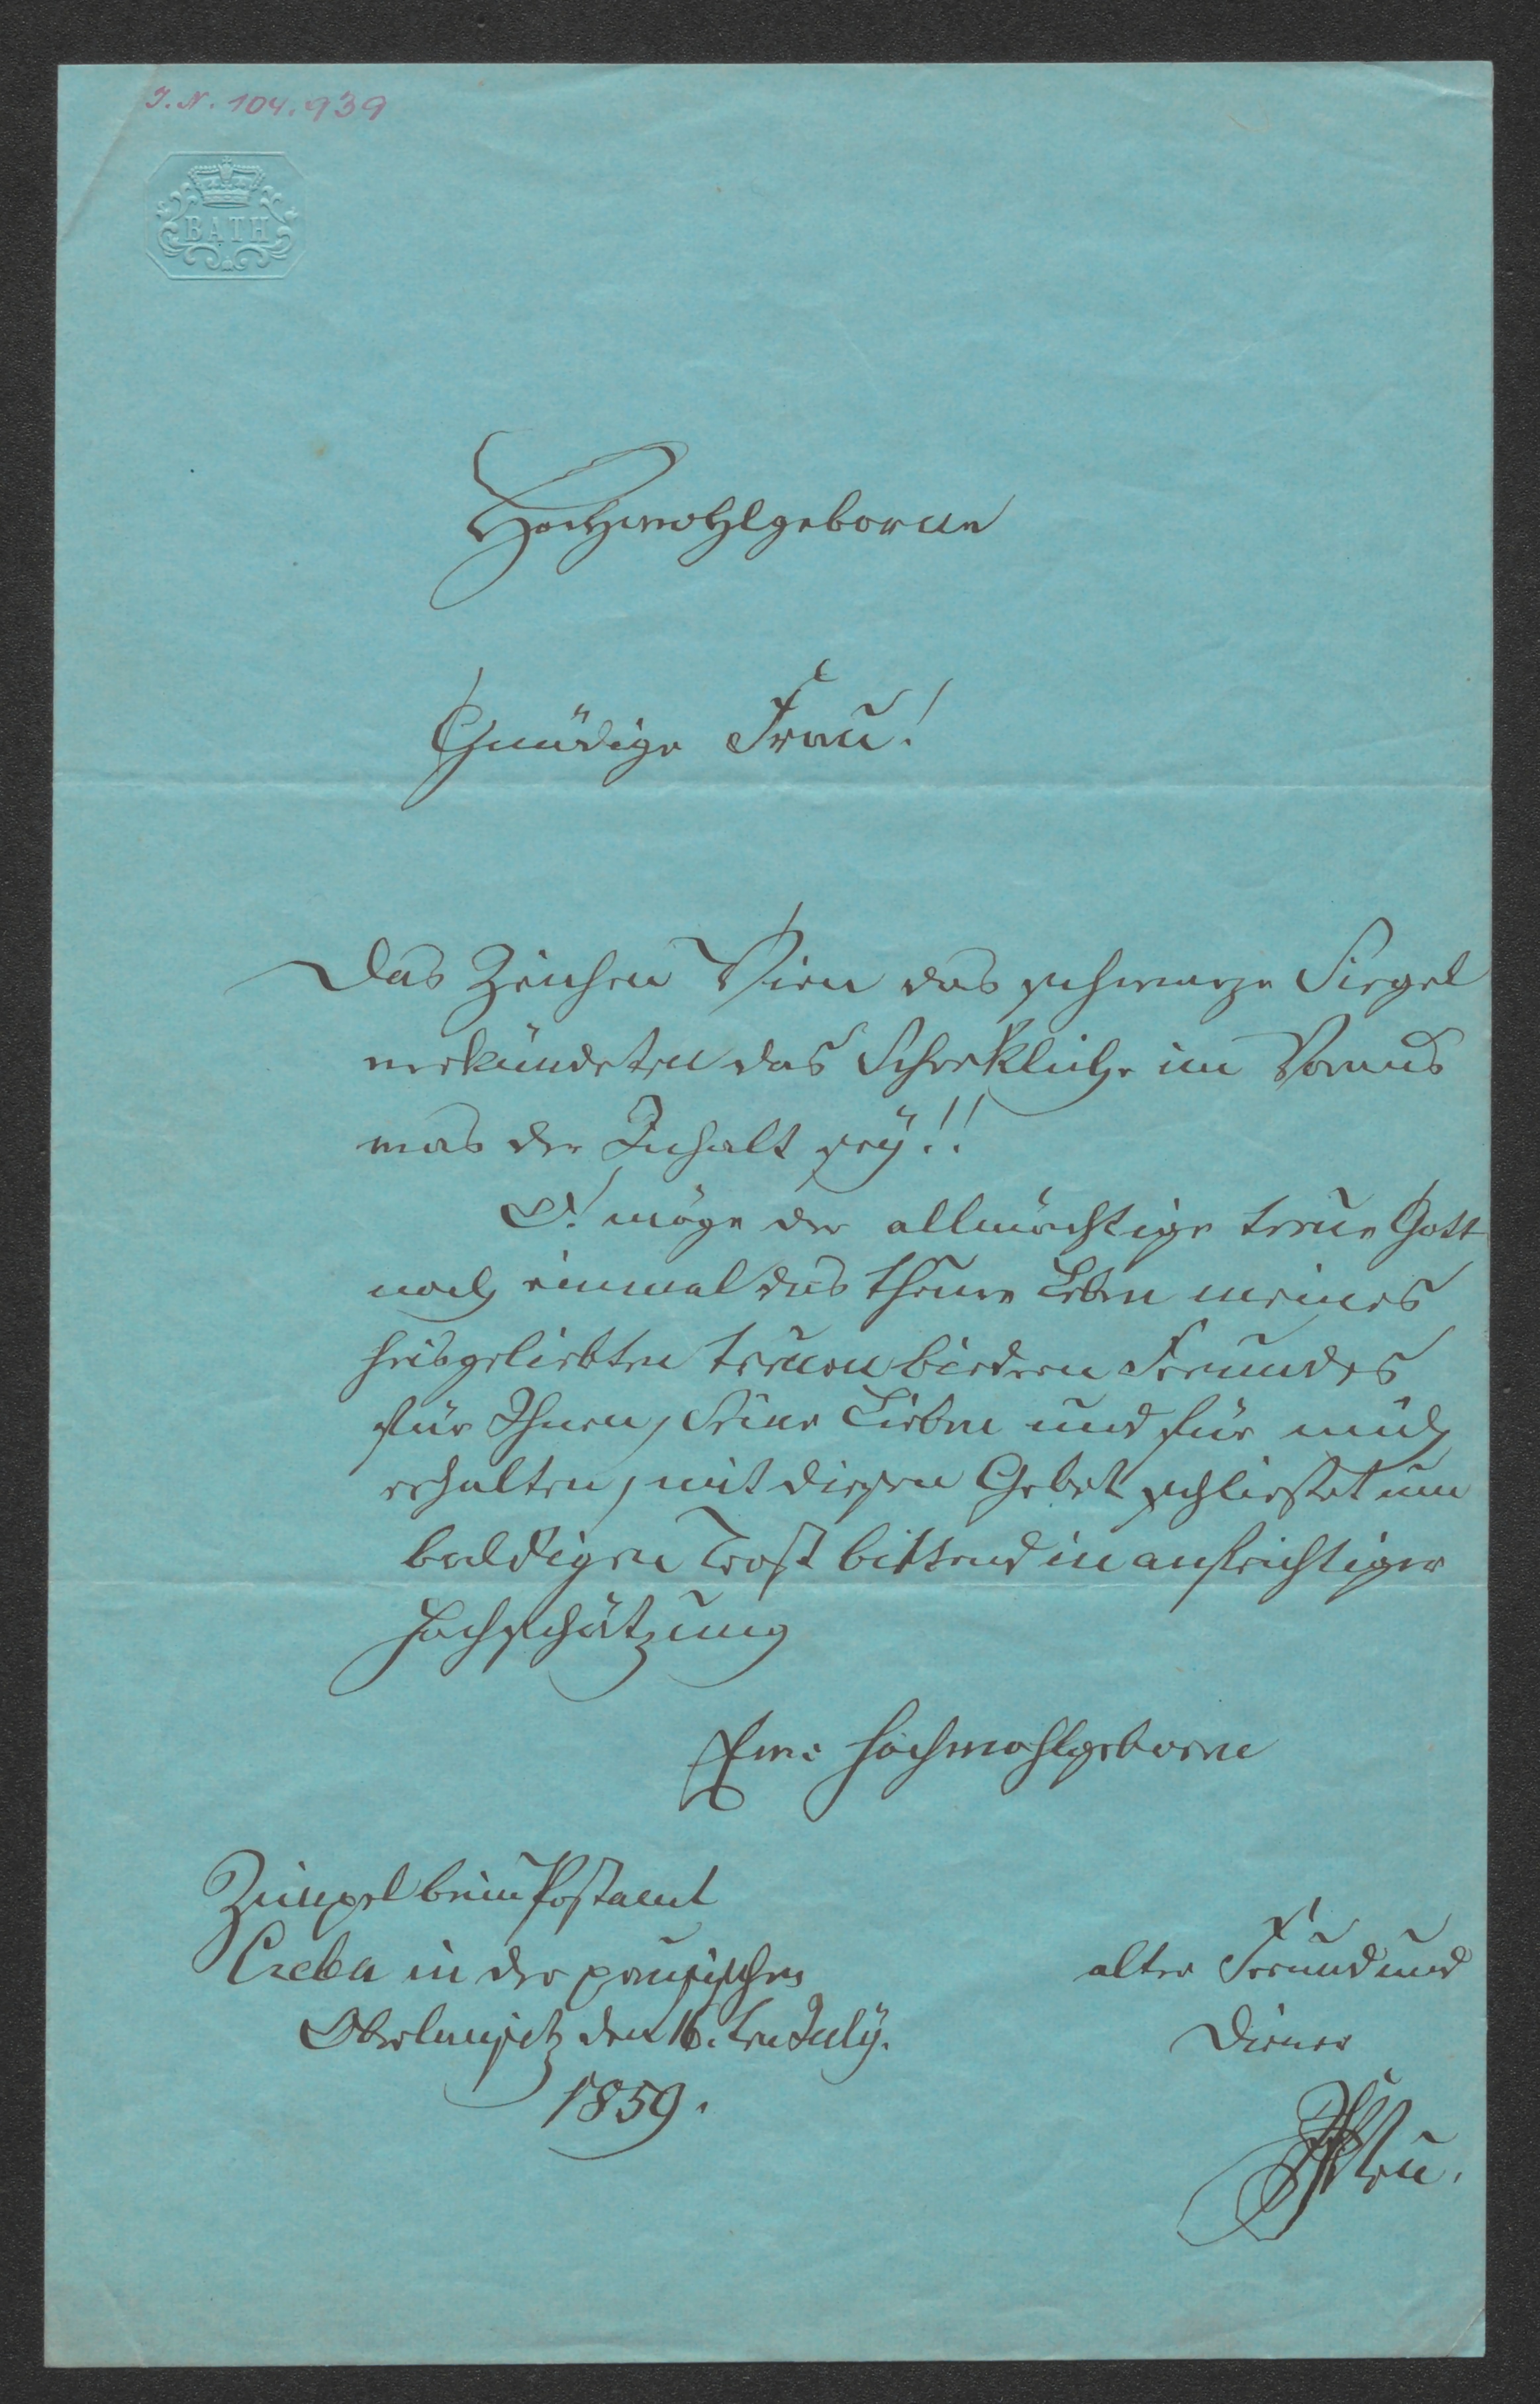 I.N. 104.939
BATH
Hochwohlgeborne
Gnädige Frau!
Das Zeichen Wien das schwarze Siegel
verkündeten das Schrekliche im Voraus
was der Inhalt sey!!
O! möge der allmächtige treue Gott
noch einmal das theure Leben meines
heisgeliebten treuen biedern Freundes
für Ihnen, Seine Lieben und für mich
erhalten, mit diesen Gebet schliesset um
baldigen Trost bittend in aufrichtiger
Hochschätzung
Euer Hochwohlgeborne
Zimpel beim Postamt
Creba in der preusischen
Oberlausitz den 16. ten July.
1859.
alter Freund und
Diener